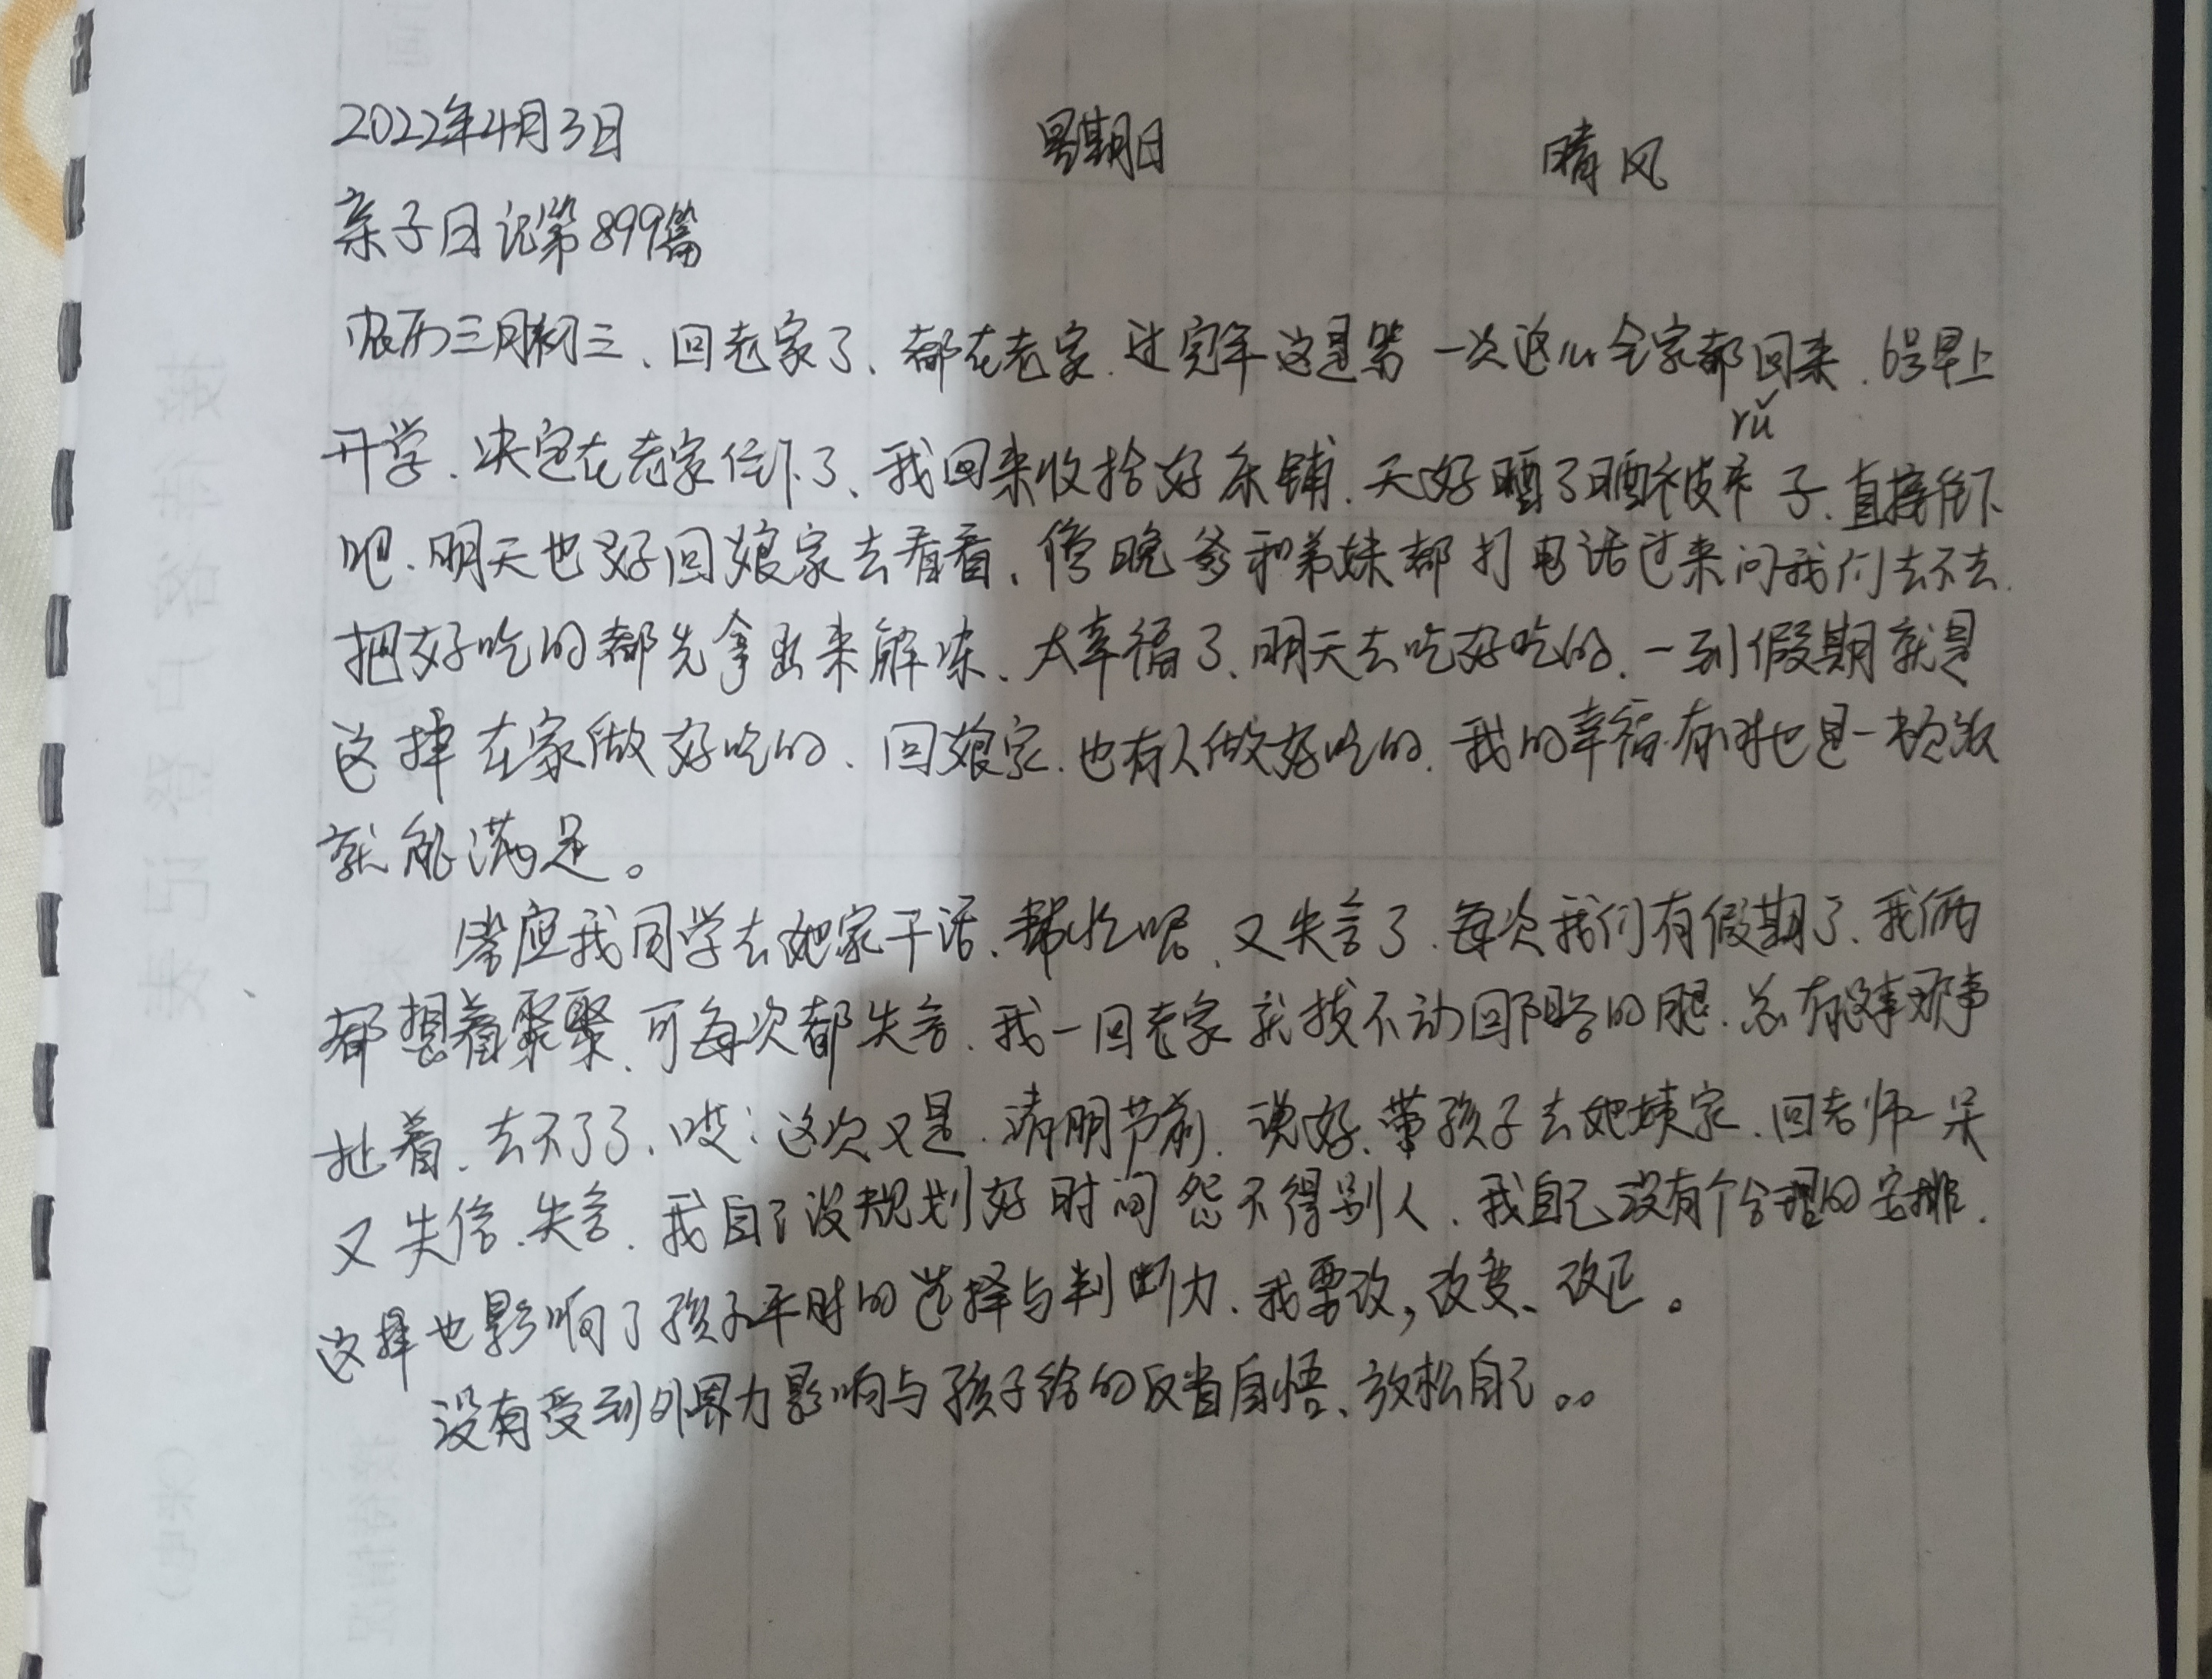 2022年4月3日 星期日 晴风
亲子日记第899篇
农历三月初三、回老家了、都在老家.过完年这是第一次这么全家都回来.6号早上
开学.决定在老家住下了、我回来收拾好床铺.天好晒了晒被rǔ子.直接住下
吧.明天也好回娘家去看看.傍晚爹和弟妹都打电话过来问我们去不去.
把好吃的都先拿出来解冻、太幸福了、明天去吃好吃的.一到假期就是
这样在家做好吃的、回娘家.也有人做好吃的.我的幸福.有时也是一顿饭
就能满足。
答应我同学去她家干活、帮忙呢、又失言了.每次我们有假期了、我俩
都想着聚聚、可每次都失言.我一回老家就拔不动回阳谷的腿.总有这事那事
扯着.去不了了、哎:这次又是.清明节前.说好.带孩子去她姨家.回老师一呆
又失信.失言.我自己没规划好时间怨不得别人.我自己没有个合理的安排.
这样也影响了孩子平时的选择与判断力.我要改,改变、改正。
没有受到外界力影响与孩子给的反省自悟、放松自己。。